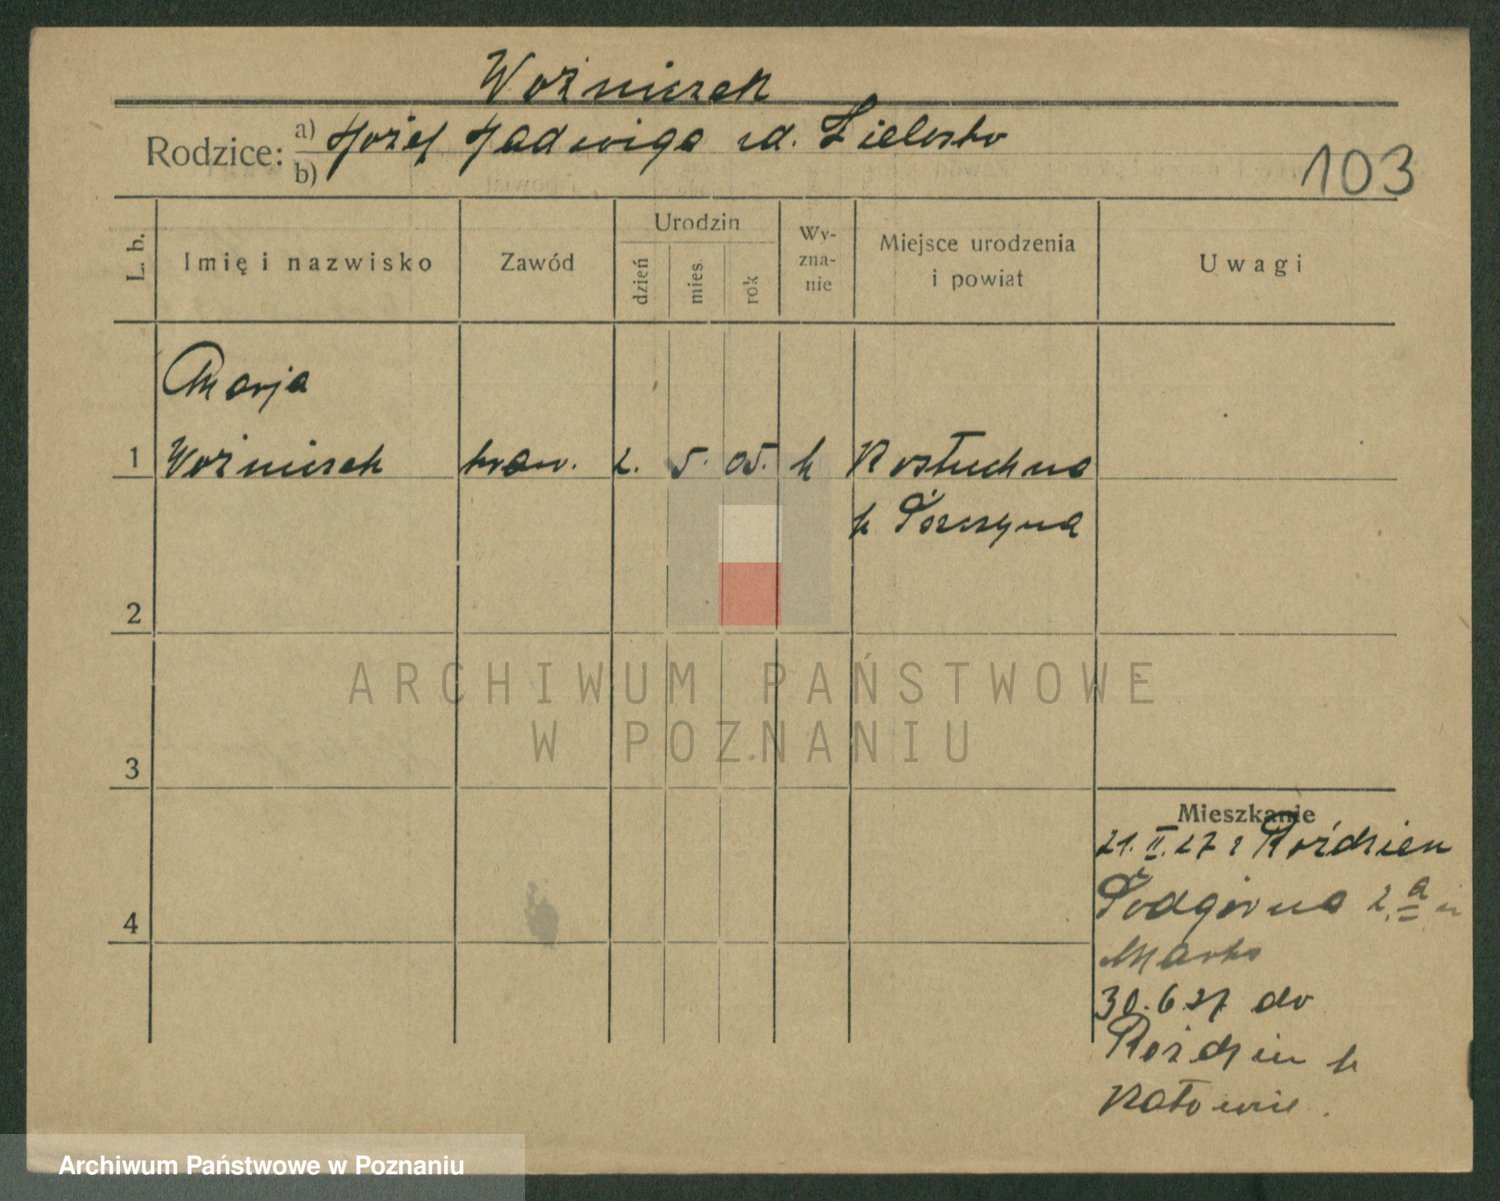 Woźniczek
Rodzice: a) Józef Jadwiga zd. Zielosko
b)
103
L. b.
Imię i nazwisko
Zawód
Urodzin
dzień
mies.
rok
Wy-
zna-
nie
Miejsce urodzenia
i powiat
Uwagi
Marja
1 Woźniczek kraw. 2. 5. 05. k Kostuchna
p. Pszczyna
2
3
4
Mieszkanie
21.II.27 z Roździen
Podgórna 2.a u
30.6.27 do
Roździen p.
Katowic.
ARCHIWUM PAŃSTWOWE
W POZNANIU
Archiwum Państwowe w Poznaniu